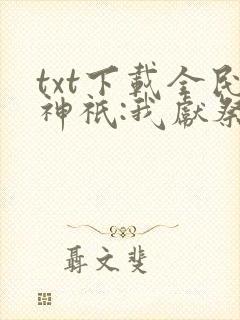 txt下載全民
神祇:我獻祭
聶文斐